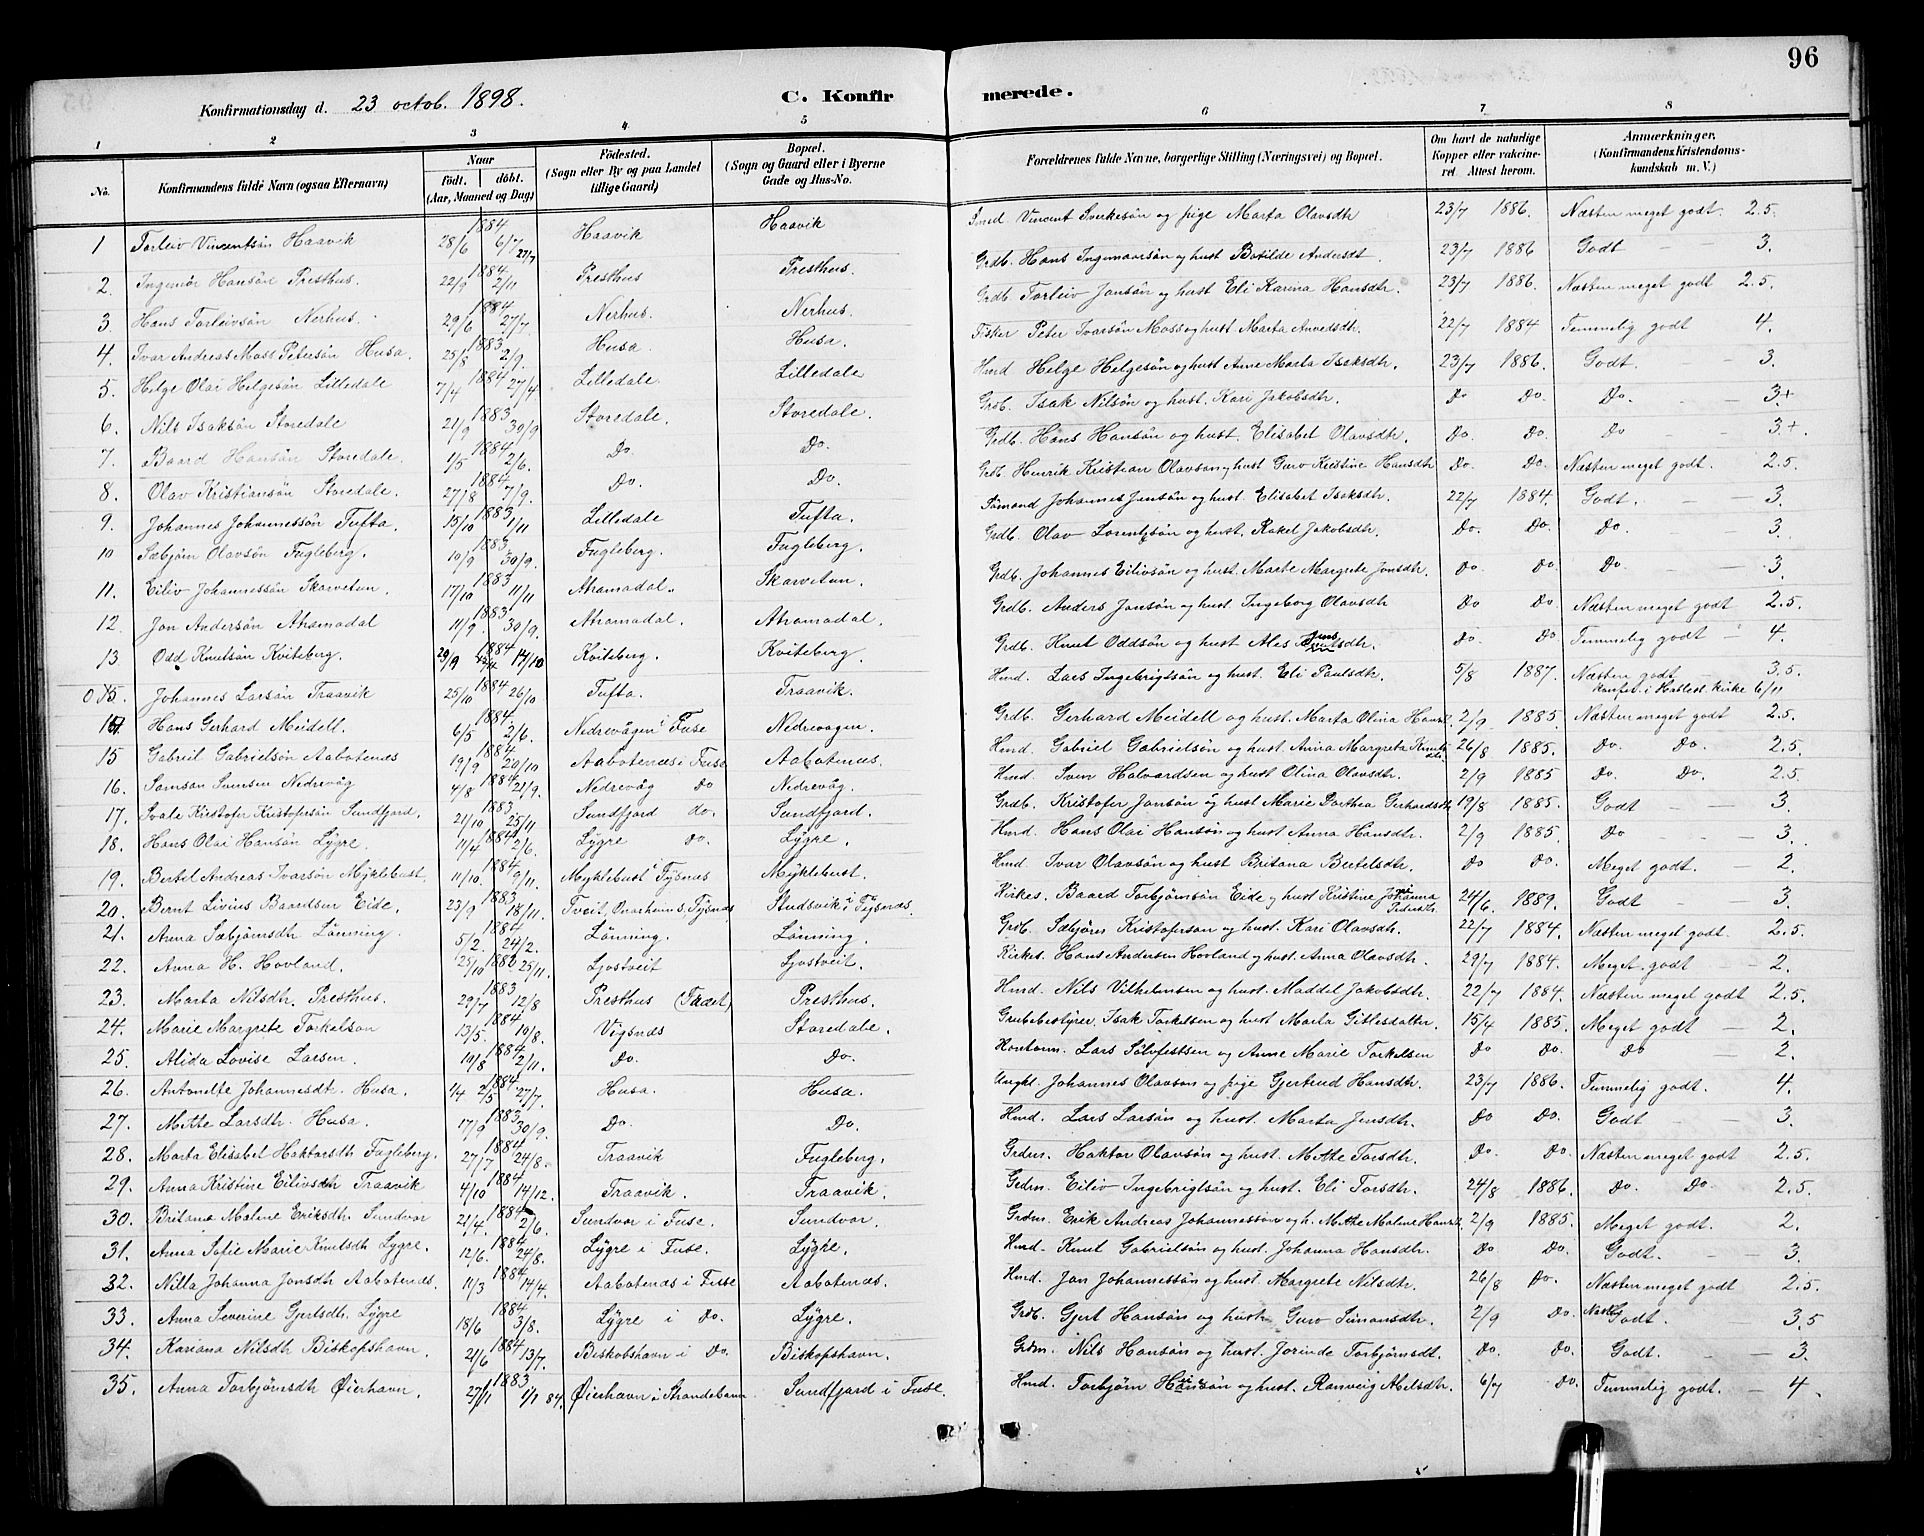 96
Konfirmationsdag d. 23 octob. 1898.
C. Konfir merede.
1 2 3 4 5 6 7 8
No. Konfirmandens fulde Navn (ogsaa Efternavn) Naar født. døbt. (Aar, Maaned og Dag) Fødested. (Sogn eller By og paa Landet tillige Gaard) Bopæl. (Sogn og Gaard eller i Byerne Gade og Hus-No. Forældrenes fulde Navne, borgerlige Stilling (Næringsvei) og Bopæl. Om havt de naturlige Kopper eller vakcineret. Attest herom. Anmærkninger. (Konfirmandens Kristendomskundskab m. V.)
1 Torleiv Vincentsøn Haavik 1884 28/6 6/7 27/7 Haavik Haavik Vincent Sverkesøn og pige Marta Olavsdtr 23/7 1886. Næsten meget godt. 2.5.
2. Ingemør Hansøn Presthus. 1884 22/9 2/11 Presthus Presthus. Grdb. Hans Ingemaarsøn og hust Botilde Andersdt 23/7 1886 Godt 3.
3. Hans Torleivsøn Nerhus. 1884 29/6 27/7. Nerhus. Nerhus. Grdb. Torleiv Jansøn og hust Eli Karina Hansdtr. 23/7 1886. Næsten meget godt 2.5.
4. Ivar Andreas Moss Petersøn Husa. 1883 25/8 2/9. Husa. Husa. Fisker Peter Ivarsøn Moss og hust. Marta Anvedsdtr. 22/7 1884 Temmelig godt 4.
5. Helge Olai Helgesøn Lilledale 1884 7/4 27/4 Lilledale Lilledale Hmd Helge Helgesøn og hust Anne Marta Isaksdtr. 23/7 1886. Godt. 3.
6. Nils Isaksøn Storedale 1883 21/9 30/9 Storedale. Storedale. Grdb. Isak Nilsøn og hust. Kari Jakobsdtr. Do Do. Do. 3+
7. Baard Hansøn Storedale. 1884 1/5 2/6. Do. Do. Grdb. Hans Hansøn og hust. Elisabet Olavsdtr. Do. Do. Do 3+.
8. Olav Kristiansøn Storedale. 1884 27/8 7/9. Do. Do. Grdb. Henrik Kristian Olavson og hust Guro Kristine Hansdtr Do. Do. Næsten meget godt. 2.5.
9. Johannes Johannessøn Tufta. 1883 15/10 1/11 Lilledale Tufta. Sømand Johannes Jansøn og hust. Elisabet Isaksdtr. 22/7 1884. Godt. 3.
10 Sæbjørn Olavsøn Fugleberg. 1883 19/9 30/9. Fugleberg. Fugleberg. Grdb. Olav Lorentzsøn og hust. Rakel Jakobsdtr. Do. Do. Do. 3.
11. Eiliv Johannessøn Skarvetun. 1883 17/10 11/11 Atramadal. Skarvetun. Grdb. Johannes Eilivsøn og hust. Marte Margrete Jonsdtr. Do. Do. Do. 3.
12. Jon Andersøn Atramadal 1883 11/9. 30/9. Atramadal. Atramadal. Grdb. Anders Jansøn og hust. Ingeborg Olavsdtr Do Do. Næsten meget godt 2.5.
13 Odd Knutsøn Kviteberg. 1884 29/9 14/10 Kviteberg. Kviteberg. Grdb. Knut Oddsøn og hust Ales Jensdtr. Do. Do Temmelig godt 4.
Johannes Larsøn Traavik 1884 25/10 26/10 Tufta. Traavik. Hmd. Lars Ingebrigtsøn og hust. Eli Paulsdtr. 5/8 1887. Næsten godt 3.5. Konfirt. i Herlest. Kirke 6/11
14. Hans Gerhard Meidell. 1884. 6/5 2/6. Nedrevågen i Fuse Nedrevagen. Grdb. Gerhard Meidell og hust. Marta Olina Hansd. 2/9 1885 Næsten meget godt 2.5.
15 Gabriel Gabrielsøn Aabotenæs 1884 19/9 20/10 Aabotenæs i Fuse Aabotenæs. Hmd. Gabriel Gabrielsøn og hust. Anna Margreta Knutsdtr. 26/8 1885. Do. Do. 2.5.
16. Samson Svensen Nedrevåg 1884 4/8 21/9. Nedrevåg Do Nedrevåg. Hmd. Sven Halvardsen og hust Olina Olavsdtr. 2/9 1885 Do. Do. 2.5.
17. Svale Kristofer Kristofersøn Sundfjord. 1883 21/10 25/11 Sundfjord do. Sundfjord. Grdb. Kristofer Jonsøn og hust Marie Dorthea Gerhardsdtr. 19/8 1885. Godt 3.
18. Hans Olai Hansøn Lygre. 1884 11/4 2/6. Lygre Do. Lygre. Hmd. Hans Olai Hansøn og hust Anna Hansdtr. 2/9 1885. Do 3.
19. Bertel Andreas Ivarsøn Mÿklebust. 1884 11/10. 9/11. Myklebust i Tÿsnæs Mÿklebust. Hmd. Ivar Olavsøn og hust Britana Bertelsdtr. Do Do. Meget godt 2.
20. Bernt Livius Baardsen Eide. 1883 23/9 18/11. Tveit, Onarheim S. Tÿsnæs Studsvik i Tÿsnæs. Kirkes. Baard Torbjørnsøn Eide og hust Kristine Johanna Pedersdtr. 24/6. 1889. Godt 3.
21. Anna Sæbjørnsdtr Lønning. 1884 5/2. 24/2. Lønning. Lønning. Grdb. Sæbjørn Kristoferson og hust. Kari Olavsdtr. 22/7 1884. Næsten meget godt. 2.5.
22. Anna H. Hovland. 25/10 25/11. Ljostveit Ljostveit. Kirkes. Hans Andersen Hovland og hust. Anna Olavsdtr. 29/7 1884. Meget godt 2.
23. Marta Nilsdtr. Presthus. 1883 29/7 12/8 Presthus (Træet) Presthus. Hmd. Nils Vilhelmsen og hust. Maddel Jakobsdtr. 22/7 1884. Næsten meget godt 2.5.
24. Marie Margrete Torkelson 1884 13/5. 19/8. Vigsnæs Storedale. Grubebestyrer. Isak Torkelsen og hust Marta Gitlesdatter. 15/4 1885. Meget godt 2.
25. Alida Lovise Larsen. 1884 19/8 2/11. Do. Do. Lars Sølvfestsen og Anne Marie Torkelsen Do Do. Do 2.
26. Antonette Johannesdt. Husa. 1884. 1/4 2/5 27/7. Husa. Husa. Ungkl. Johannes Olavson og pige Gjertrud Hansdtr. 23/7 1886. Temmelig godt. 4.
27. Mette Larsdtr. Husa. 1883 17/9 30/9. Do. Do. Hmd. Lars Larsøn og hust. Marta Jensdtr. Do Do. Godt 3.
28. Marta Elisabet Haktorsdtr Fugleberg. 1884 27/7 24/8. Traavik Fugleberg. Grdm. Haktor Olavsøn og hust. Mette Torsdtr. Do. Do. Næsten meget godt 2.5.
29. Anna Kristine Eilivsdtr Traavik 1884 4/10 14/12. Traavik. Traavik. Grdm. Eiliv Ingebrigtsøn og hust. Eli Torsdtr. 24/8 1886. Do. Do. 2.5.
30. Britana Malene Eriksdtr. Sundvor 1884 21/4. 2/6. Sundvor i Fuse. Sundvor. Grdm. Erik Andreas Johannessøn og h. Mette Malene Hansd. 2/9 1885. Meget godt. 2.
31. Anna Sofie Marie Knutsdtr Lygre. 1884 12/6. 24/8. Lÿgre i Fuse. Lÿgre. Hmd. Knut Gabrielsøn og hust. Johanna Hansdtr. Do Do. Godt. 3.
32. Nilla Johanna Jonsdtr Aabotenæs. 1884 11/3 14/4. Aabotenæs i Fuse Aabotenæs. Hmd. Jan Johannessøn og hust. Margrete Nilsdtr. 26/8 Do. Næsten meget godt 2.5.
33. Anna Severine Gjertsdtr. Lÿgre 1884 18/6 3/8. Lÿgre i Do. Lÿgre. Grdb. Gjert Hansøn og hust. Guro Simonsdtr. 2/9 Do Næst. Godt. 3.5
34. Kariana Nilsdtr Biskopshavn. 1884 21/6 13/7. Biskobshavn i Do. Biskopshavn. Grdm. Nils Hansøn og hust. Jorinde Torbjørnsdt. Do. Do. Godt. 3.
35. Anna Torbjørnsdtr Øierhavn. 1883 27/11 1/1 84. Øierhavn i Strandebarm Sundfjord i Fuse. Hmd. Torbjørn Hansøn og hust. Ranveig Abelsdtr. 6/7 Do. Temmelig godt. 4.